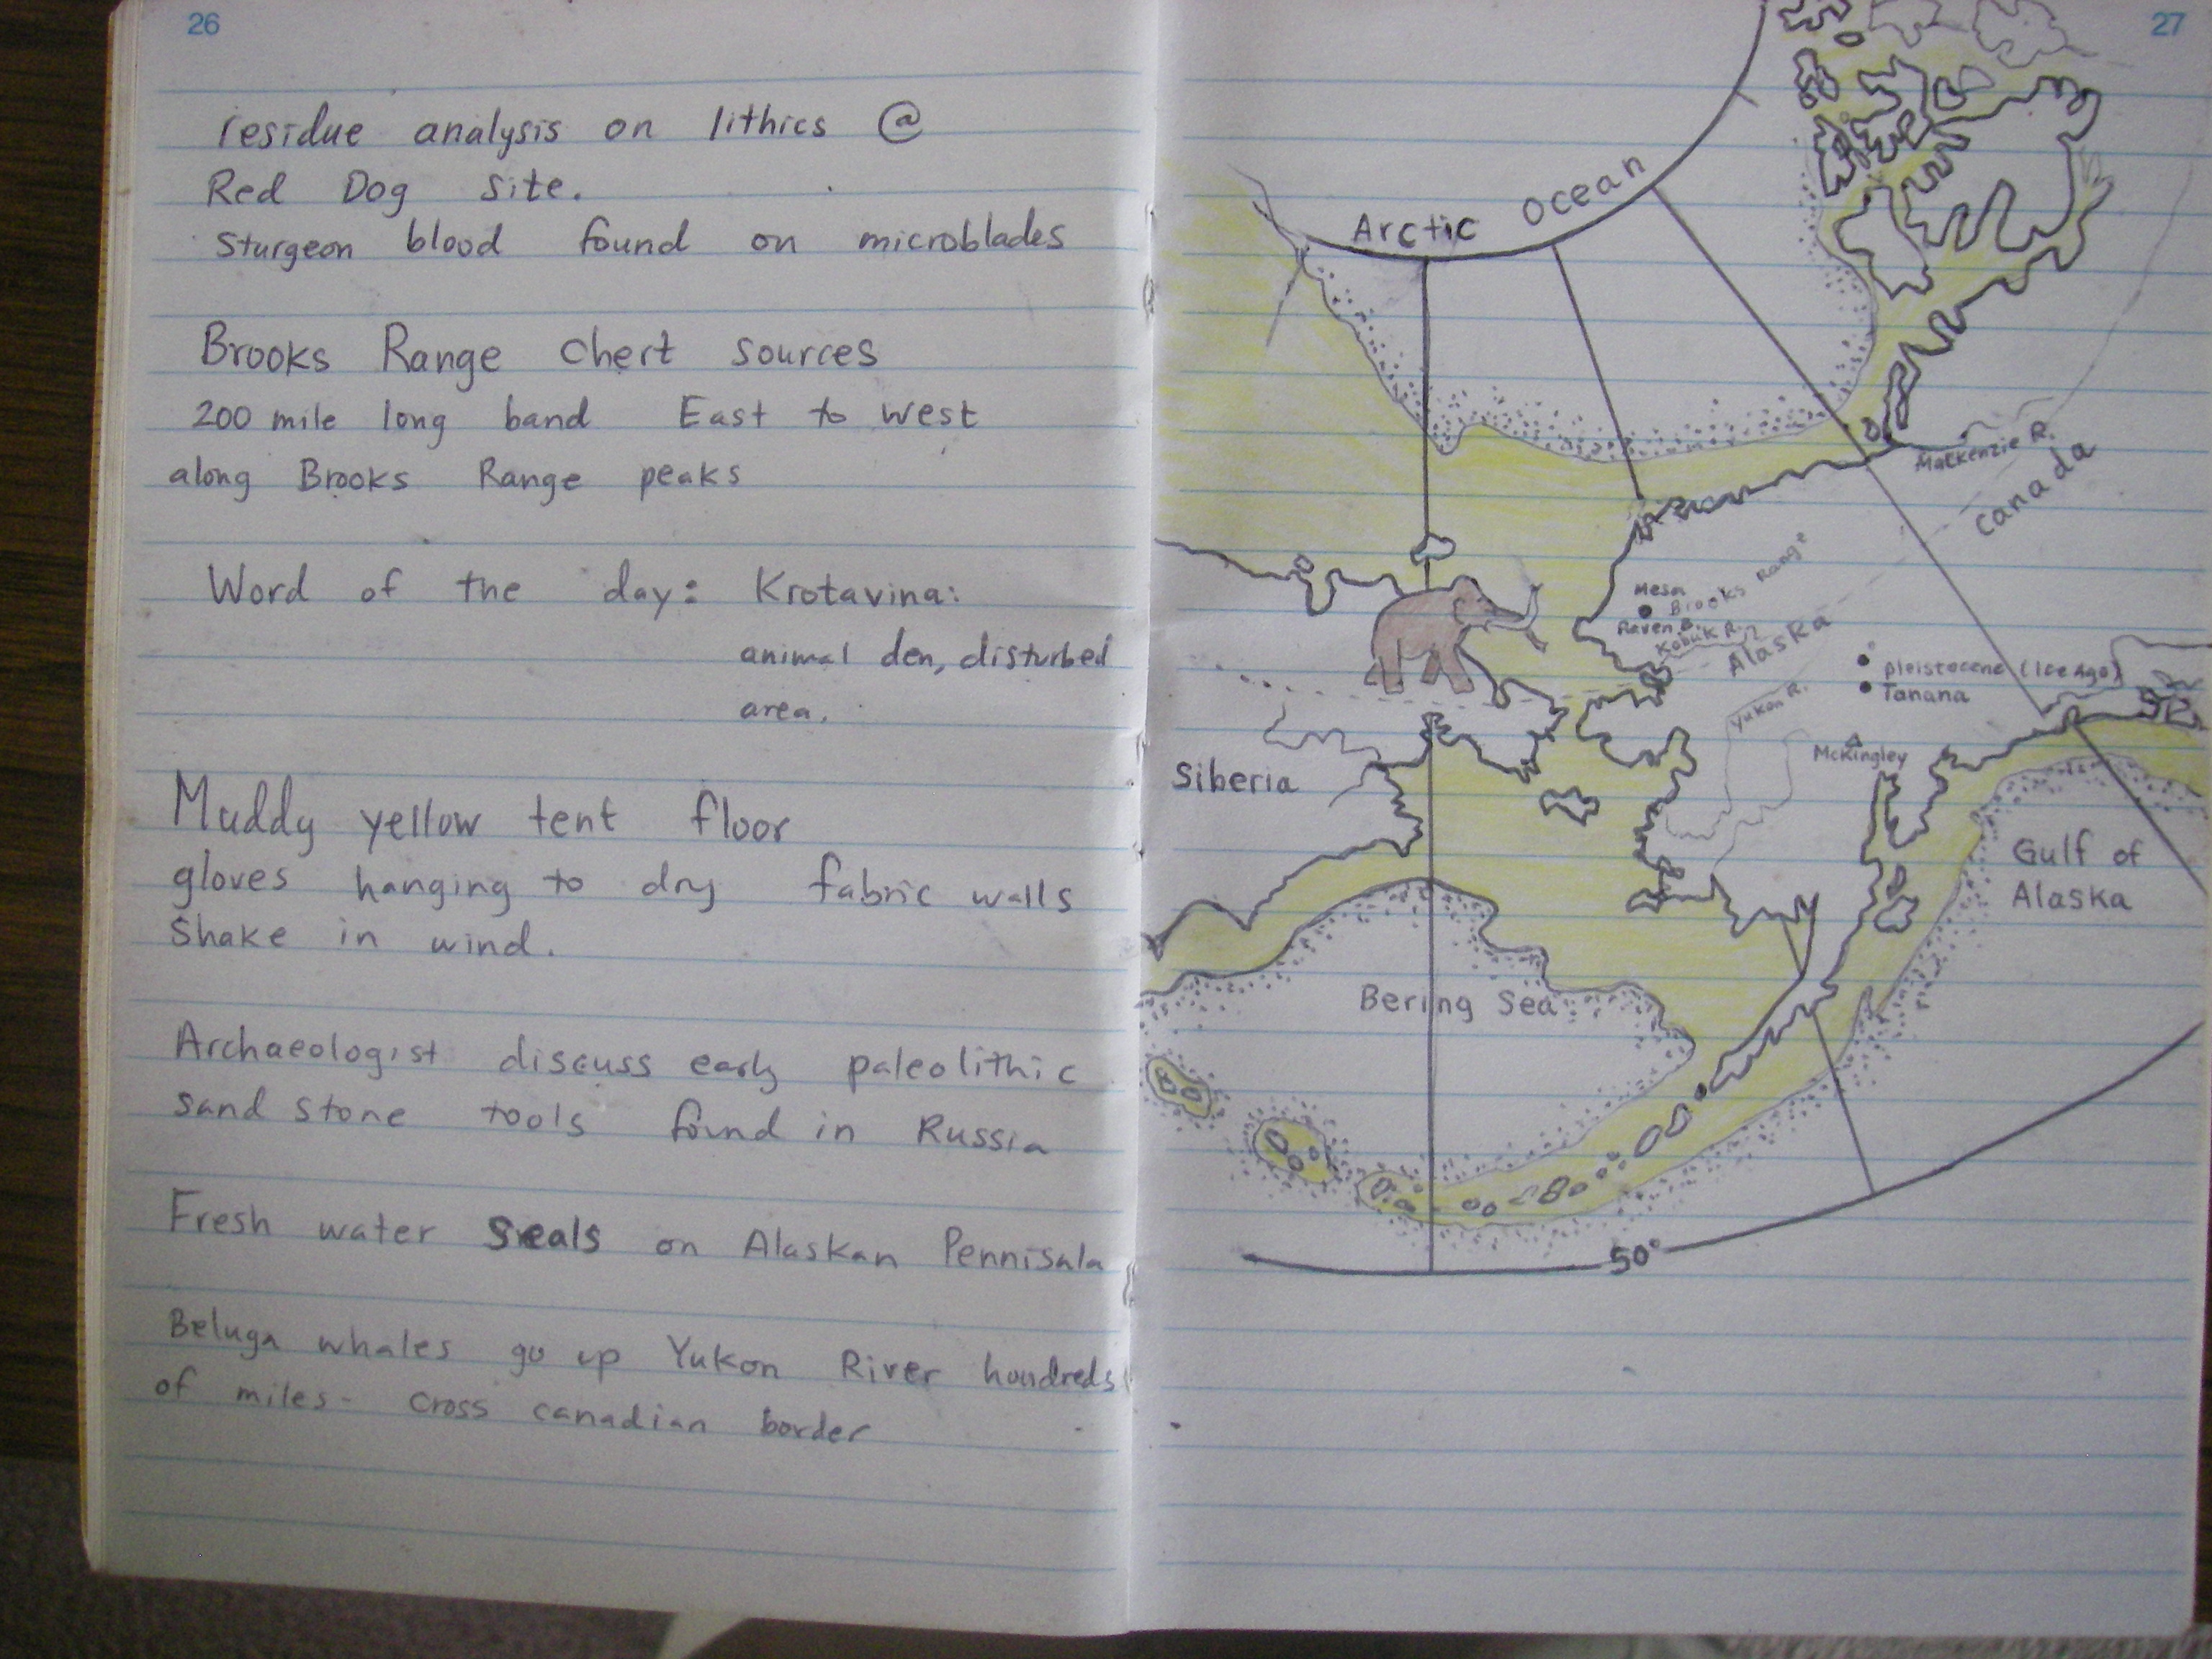 26
residue analysis on lithics @
Red Dog Site.
Sturgeon blood found on microblades
Brooks Range Chert sources
200 mile long band East to west
along Brooks Range peaks
Word of the day: Krotavina:
animal den, disturbed
area.
Muddy yellow tent floor
gloves hanging to dry fabric walls
Shake in wind.
Archaeologist discuss early paleolithic
sand stone tools found in Russia
Fresh water Seals on Alaskan Pennisala
Beluga whales go up Yukon River houdreds
of miles - cross canadian border
27
Arctic Ocean
Mackenzie R.
Canada
Mesa
Brooks Range
Raven B.
Kobuk R.
Alaska
pleistocene (Ice Age)
Tanana
Yukon R.
McKingley
Siberia
Gulf of
Alaska
Bering Sea
50°